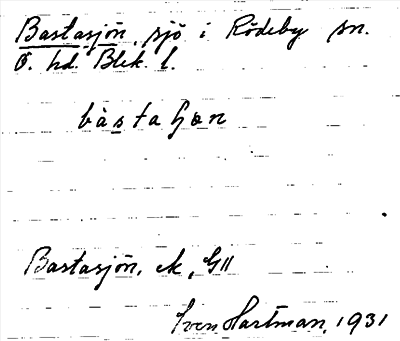 Bastasjön, sjö i Rödeby sn.
Ö. hd Blek. l.
bàstaʃɷn
Bastasjön, ek, G11
Sven Hartman, 1931